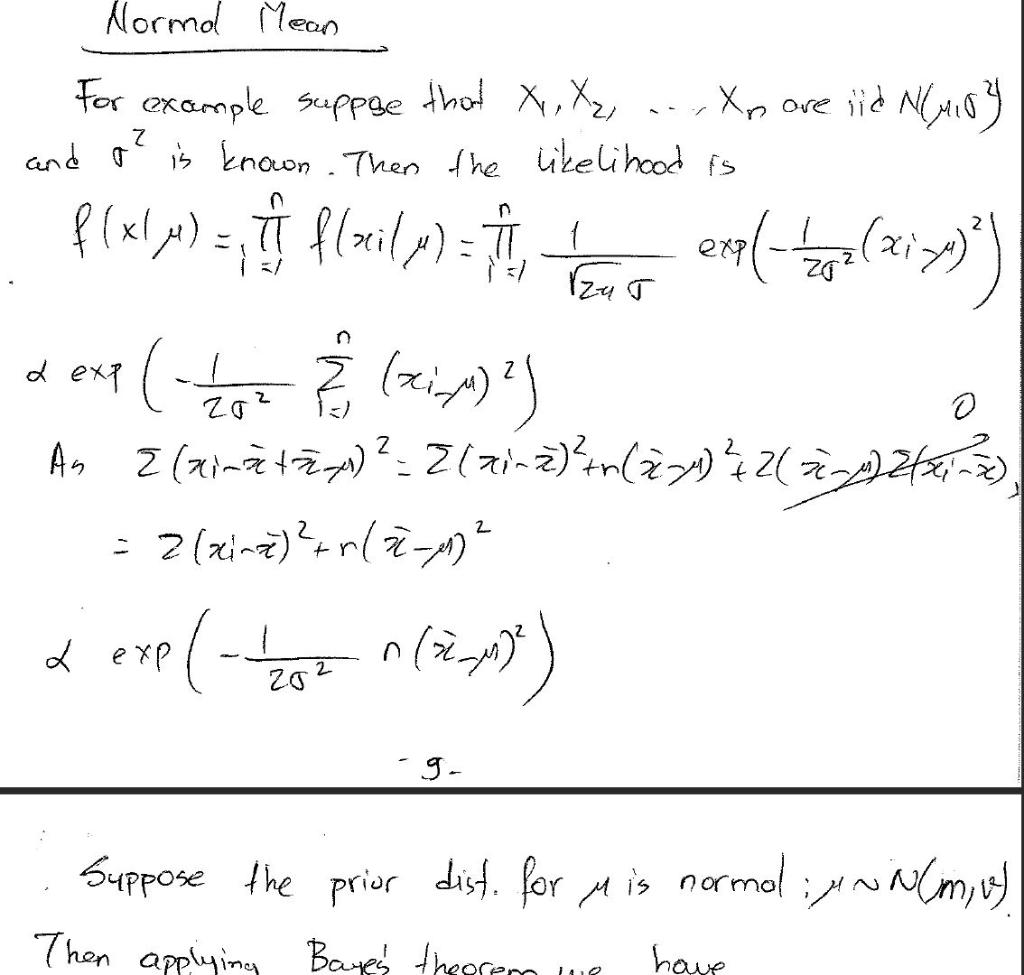 Normal Mean
For example suppose that X₁, X₂, ..., Xₙ are iid N(μ,σ²)
and σ² is known. Then the likelihood is
f(x|μ) = ∏ᵢ₌₁ⁿ f(xi|μ) = ∏ᵢ₌₁ⁿ 1/(√2π σ) exp(-1/(2σ²) (xi-μ)²)
α exp(-1/(2σ²) Σᵢ₌₁ⁿ (xi-μ)²)
As Σ(xi-x̄+x̄-μ)² = Σ(xi-x̄)²+n(x̄-μ)²+2(x̄-μ)Σ(xi-x̄) 0
= Σ(xi-x̄)²+n(x̄-μ)²
α exp(-1/(2σ²) n(x̄-μ)²)
-9-
Suppose the prior dist. for μ is normal; μ~N(m,v)
Then applying Bayes theorem we have